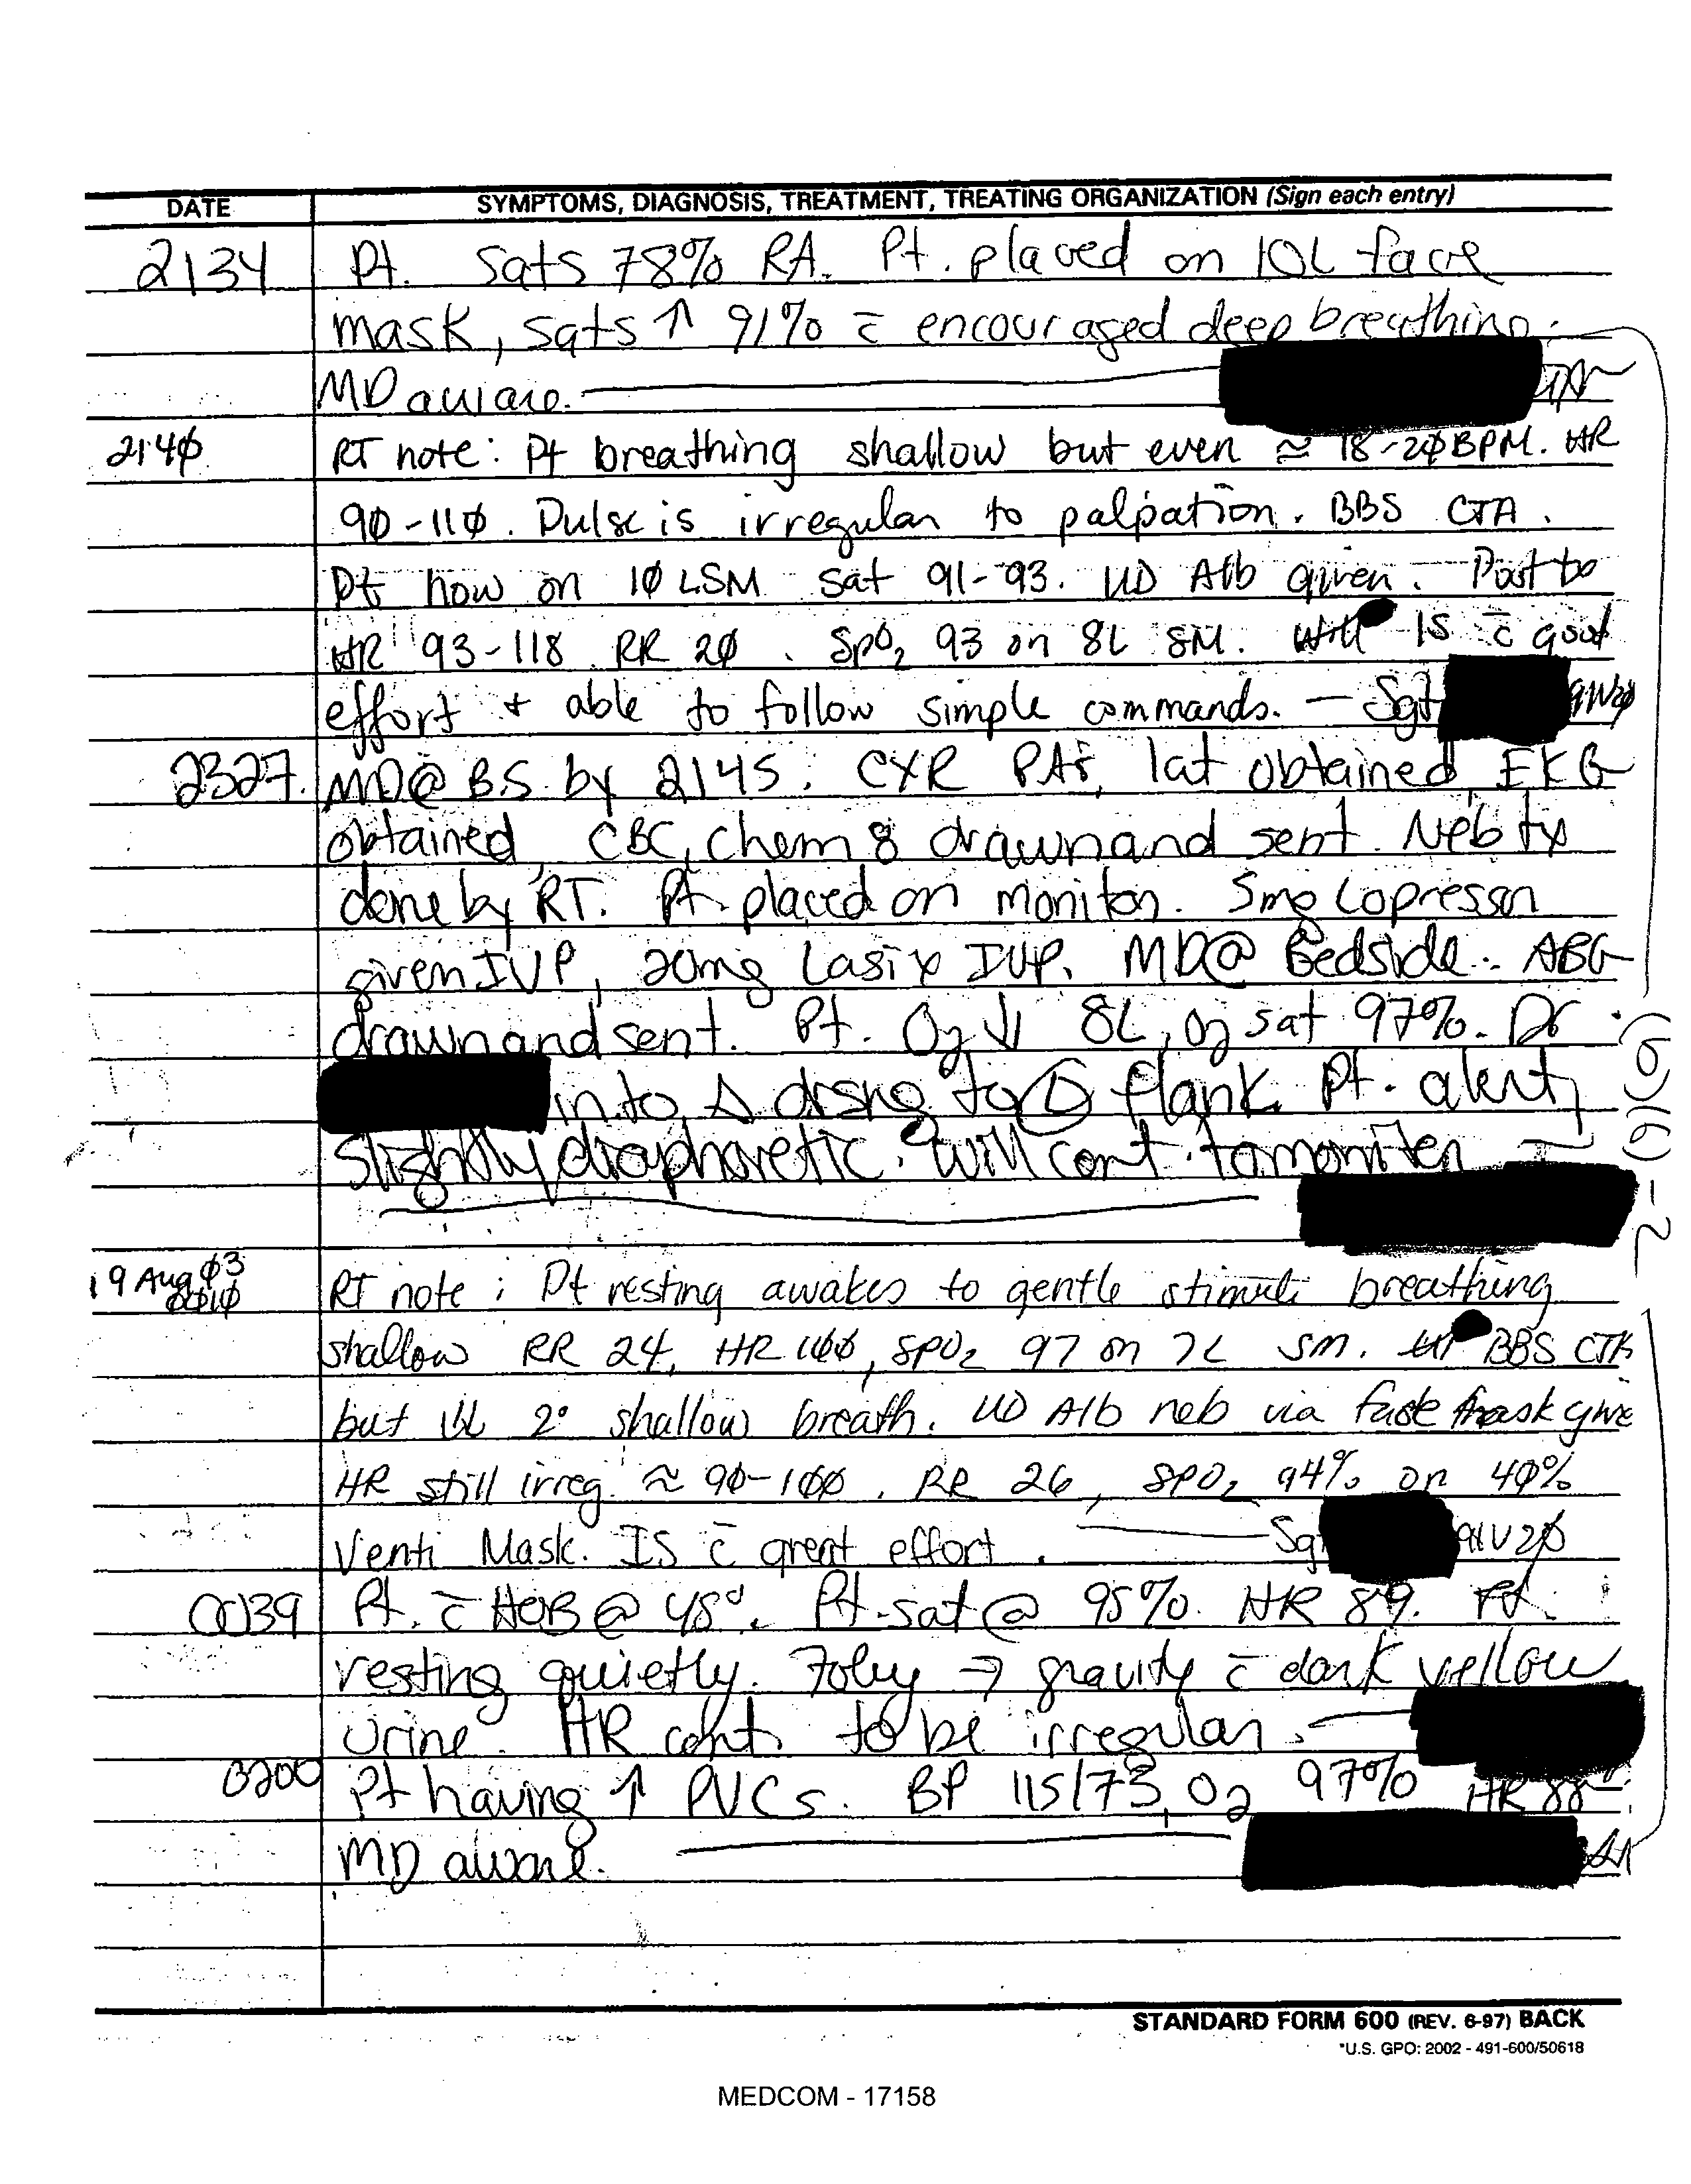 DATE SYMPTOMS, DIAGNOSIS, TREATMENT, TREATING ORGANIZATION (Sign each entry)
2134 Pt. Sats 78% RA. Pt. placed on 10L face
mask, sats ↑ 91% c̄ encouraged deep breathing.
MD aware.
214φ RT note: Pt breathing shallow but even ≈ 18-2φ BPM. HR
9φ-11φ. Pulse is irregular to palpation. BBS CTA.
Pt now on 1φ LSM sat 91-93. UD Alb given. Post tx
HR 93-118 RR 2φ. SpO₂ 93 on 8L SM. IS c̄ good
effort + able to follow simple commands. — Sgt
2327. MD@ B.S. by 2145. CXR PA & lat obtained, EKG
obtained, CBC, chem 8 drawn and sent. Neb tx
done by RT. Pt placed on monitor. 5mg Lopressor
given IVP, 20mg Lasix IVP. MD@ Bedside. ABG
drawn and sent. Pt. O2 ↓ 8L, O2 sat 97%. Dr
into Δ drsng to Ⓛ flank. Pt. alert,
slightly diaphoretic. Will cont. to moniter
(b)(6)-2
19 Aug φ3
φφ1φ RT note: Pt resting awakes to gentle stimuli breathing
shallow RR 24, HR 1φφ, SPO₂ 97 on 7L SM. BBS CTA
but 2° shallow breath. UD Alb neb via face mask give
HR still irreg. ≈ 9φ-1φφ. RR 26, SPO₂ 94% on 4φ%
Venti Mask. IS c̄ great effort. Sgt 91V2φ
0039 Pt. c̄ HOB @ 45°. Pt. sat @ 95%. HR 89. Pt.
resting quietly. Foley → gravity c̄ dark yellow
urine. HR cont. to be irregular.
0200 Pt having ↑ PVCs. BP 115/73, O2 97% HR 88
MD aware.
STANDARD FORM 600 (REV. 6-97) BACK
*U.S. GPO: 2002 - 491-600/50618
MEDCOM - 17158